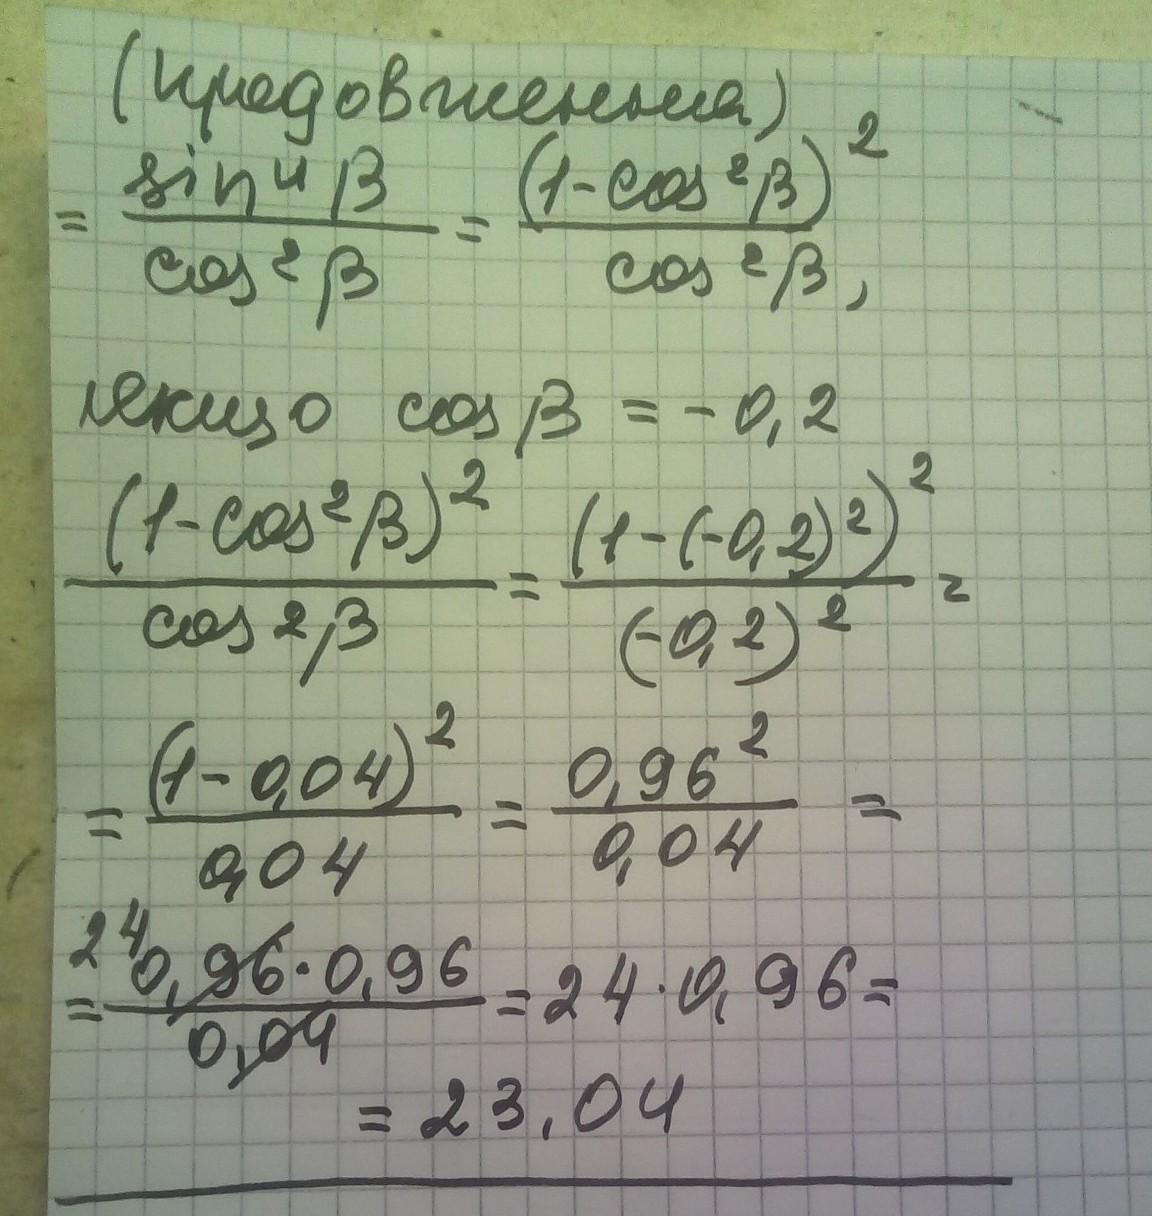 (продовження)
= sin⁴β / cos²β = (1-cos²β)² / cos²β,
якщо cosβ = -0,2
(1-cos²β)² / cos²β = (1-(-0,2)²)² / (-0,2)² =
= (1-0,04)² / 0,04 = 0,96² / 0,04 =
= 24 0,96·0,96 / 0,04 = 24·0,96=
= 23,04